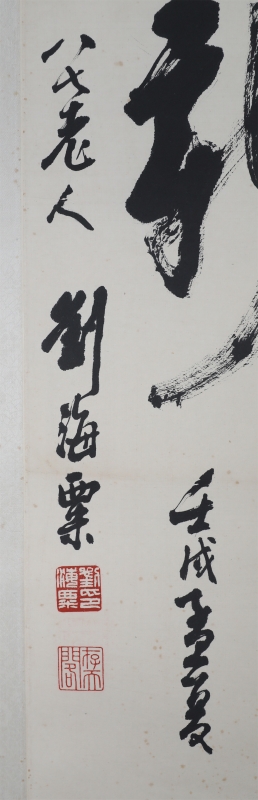 壬戌孟夏
八七老人 劉海粟
劉印海粟
存天閣